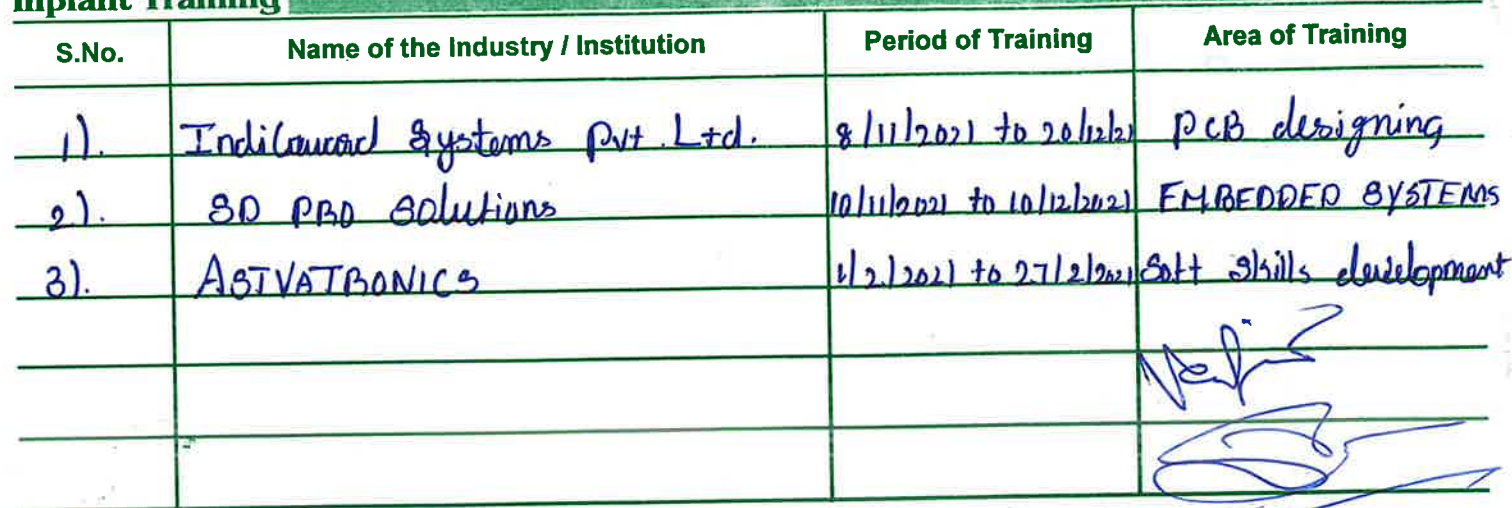 Inplant Training
S.No. Name of the Industry / Institution Period of Training Area of Training
1). Systems Pvt. Ltd. 8/11/2021 to 20/12/21 PCB designing
2). SD PRO Solutions 10/11/2021 to 10/12/2021 EMBEDDED SYSTEMS
3). ASTVATRONICS 1/2/2021 to 27/2/2021 Soft Skills development